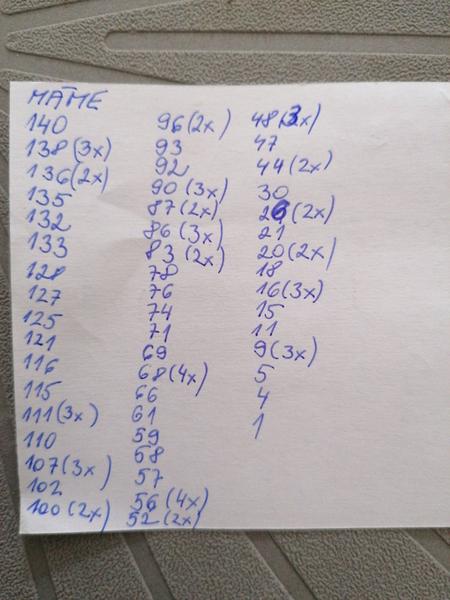 MÁME
140
138 (3x)
136 (2x)
135
132
133
128
127
125
121
116
115
111 (3x)
110
107 (3x)
102
100 (2x)
96 (2x)
93
92
90 (3x)
87 (2x)
86 (3x)
83 (2x)
78
76
74
71
69
68 (4x)
66
61
59
58
57
56 (4x)
52 (2x)
48 (3x)
47
44 (2x)
30
26 (2x)
21
20 (2x)
18
16 (3x)
15
11
9 (3x)
5
4
1